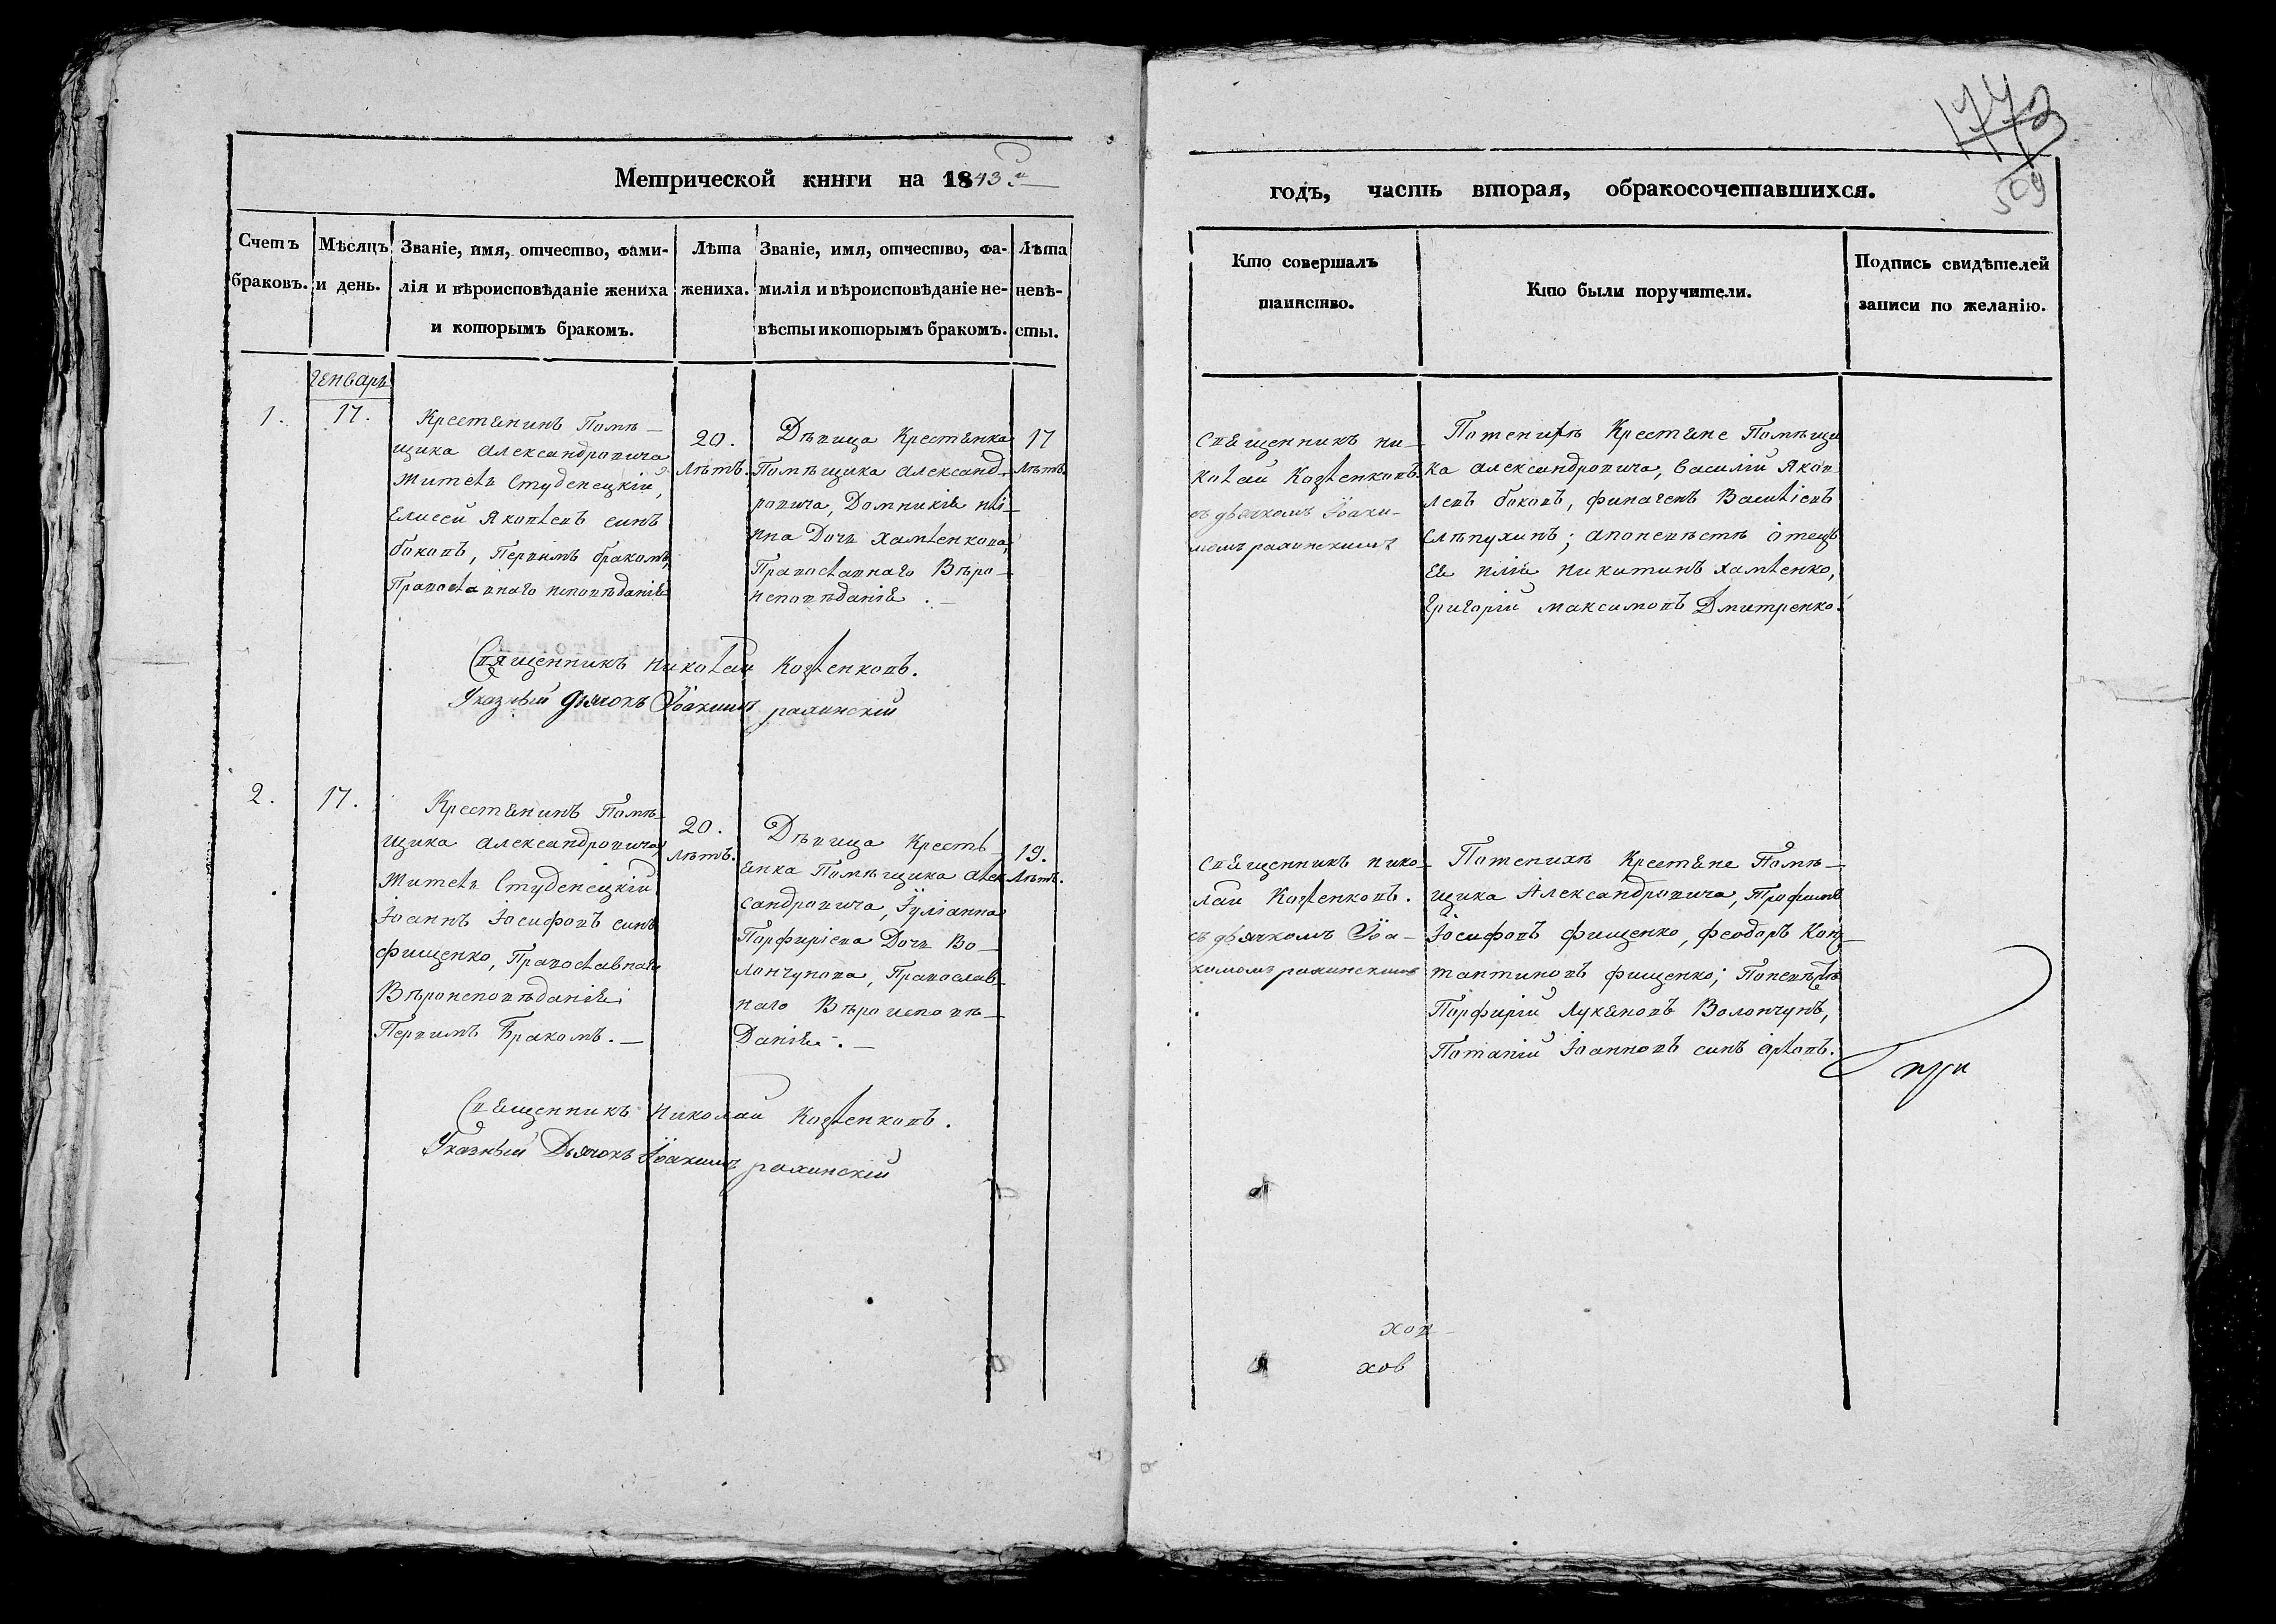 Метрической книги на 1843й
годъ, часть вторая, обракосочетавшихся.
1773
509
Счетъ браковъ.
Мѣсяцъ и день.
Званіе, имя, отчество, фами-
лія и вѣроисповѣданіе жениха
и которымъ бракомъ.
Лѣта
жениха.
Званіе, имя, отчество, фа-
милія и вѣроисповѣданіе не-
вѣсты и которымъ бракомъ.
Лѣта
невѣ-
сты.
Кто совершалъ
таинство.
Кто были поручители.
Подпись свидѣтелей
записи по желанію.
Генварь
1.
17.
Крестянинъ Помѣ-
щика Александровича
Житель Студенецкій,
Елисей Яковлевъ синъ
боковъ, Первимъ бракомъ,
Православнаго исповѣданія
20.
Лѣтъ.
Дѣвица Крестянка
Помѣщика Александ-
ровича, Домникія илі-
ина Дочь Хамленкова,
Православнаго Вѣро-
исповѣданія.
17
Лѣтъ.
Священникъ ни-
колай Козленковъ.
съ дьячкомъ Іоаки-
момъ рахинскимъ
Поженихѣ Крестяне Помѣщи
ка Александровича, Василій Яков
левъ боковъ, финагенъ Василіевъ
Слѣпухинъ; апоневѣстѣ отецъ
Ея илія Никитинъ Хамленко,
Григорій Максимовъ Дмитренко.
Священникъ николай Козленковъ.
Указный Дьячокъ Іоакимъ рахинскій
2.
17.
Крестянинъ Помѣ-
щика Александровича,
Житель Студенецкій
Іоаннъ Іосифовъ синъ
фищенко, Православнаго
Вѣроисповѣданія
Первимъ Бракомъ.
20.
Лѣтъ.
Дѣвица Кресть-
янка Помѣщика Алек
сандровича, Іуліанна
Порфиріева Дочь Во-
лончукова, Православ-
наго Вѣроисповѣ-
Данія.
19.
Лѣтъ.
Священникъ нико-
лай Козленковъ.
съ дьячкомъ Іоа-
кимомъ рахинскимъ
Поженихѣ Крестяне Помѣ-
щика Александровича, Трофимъ
Іосифовъ фищенко, феодоръ Конс-
тантиновъ фищенко; Поневѣстѣ
Порфирій Лукяновъ Волончукъ,
Потапій Іоанновъ синъ орловъ.
Священникъ Николай Козленковъ.
Указный Дьячокъ Іоакимъ рахинскій
хов
хов